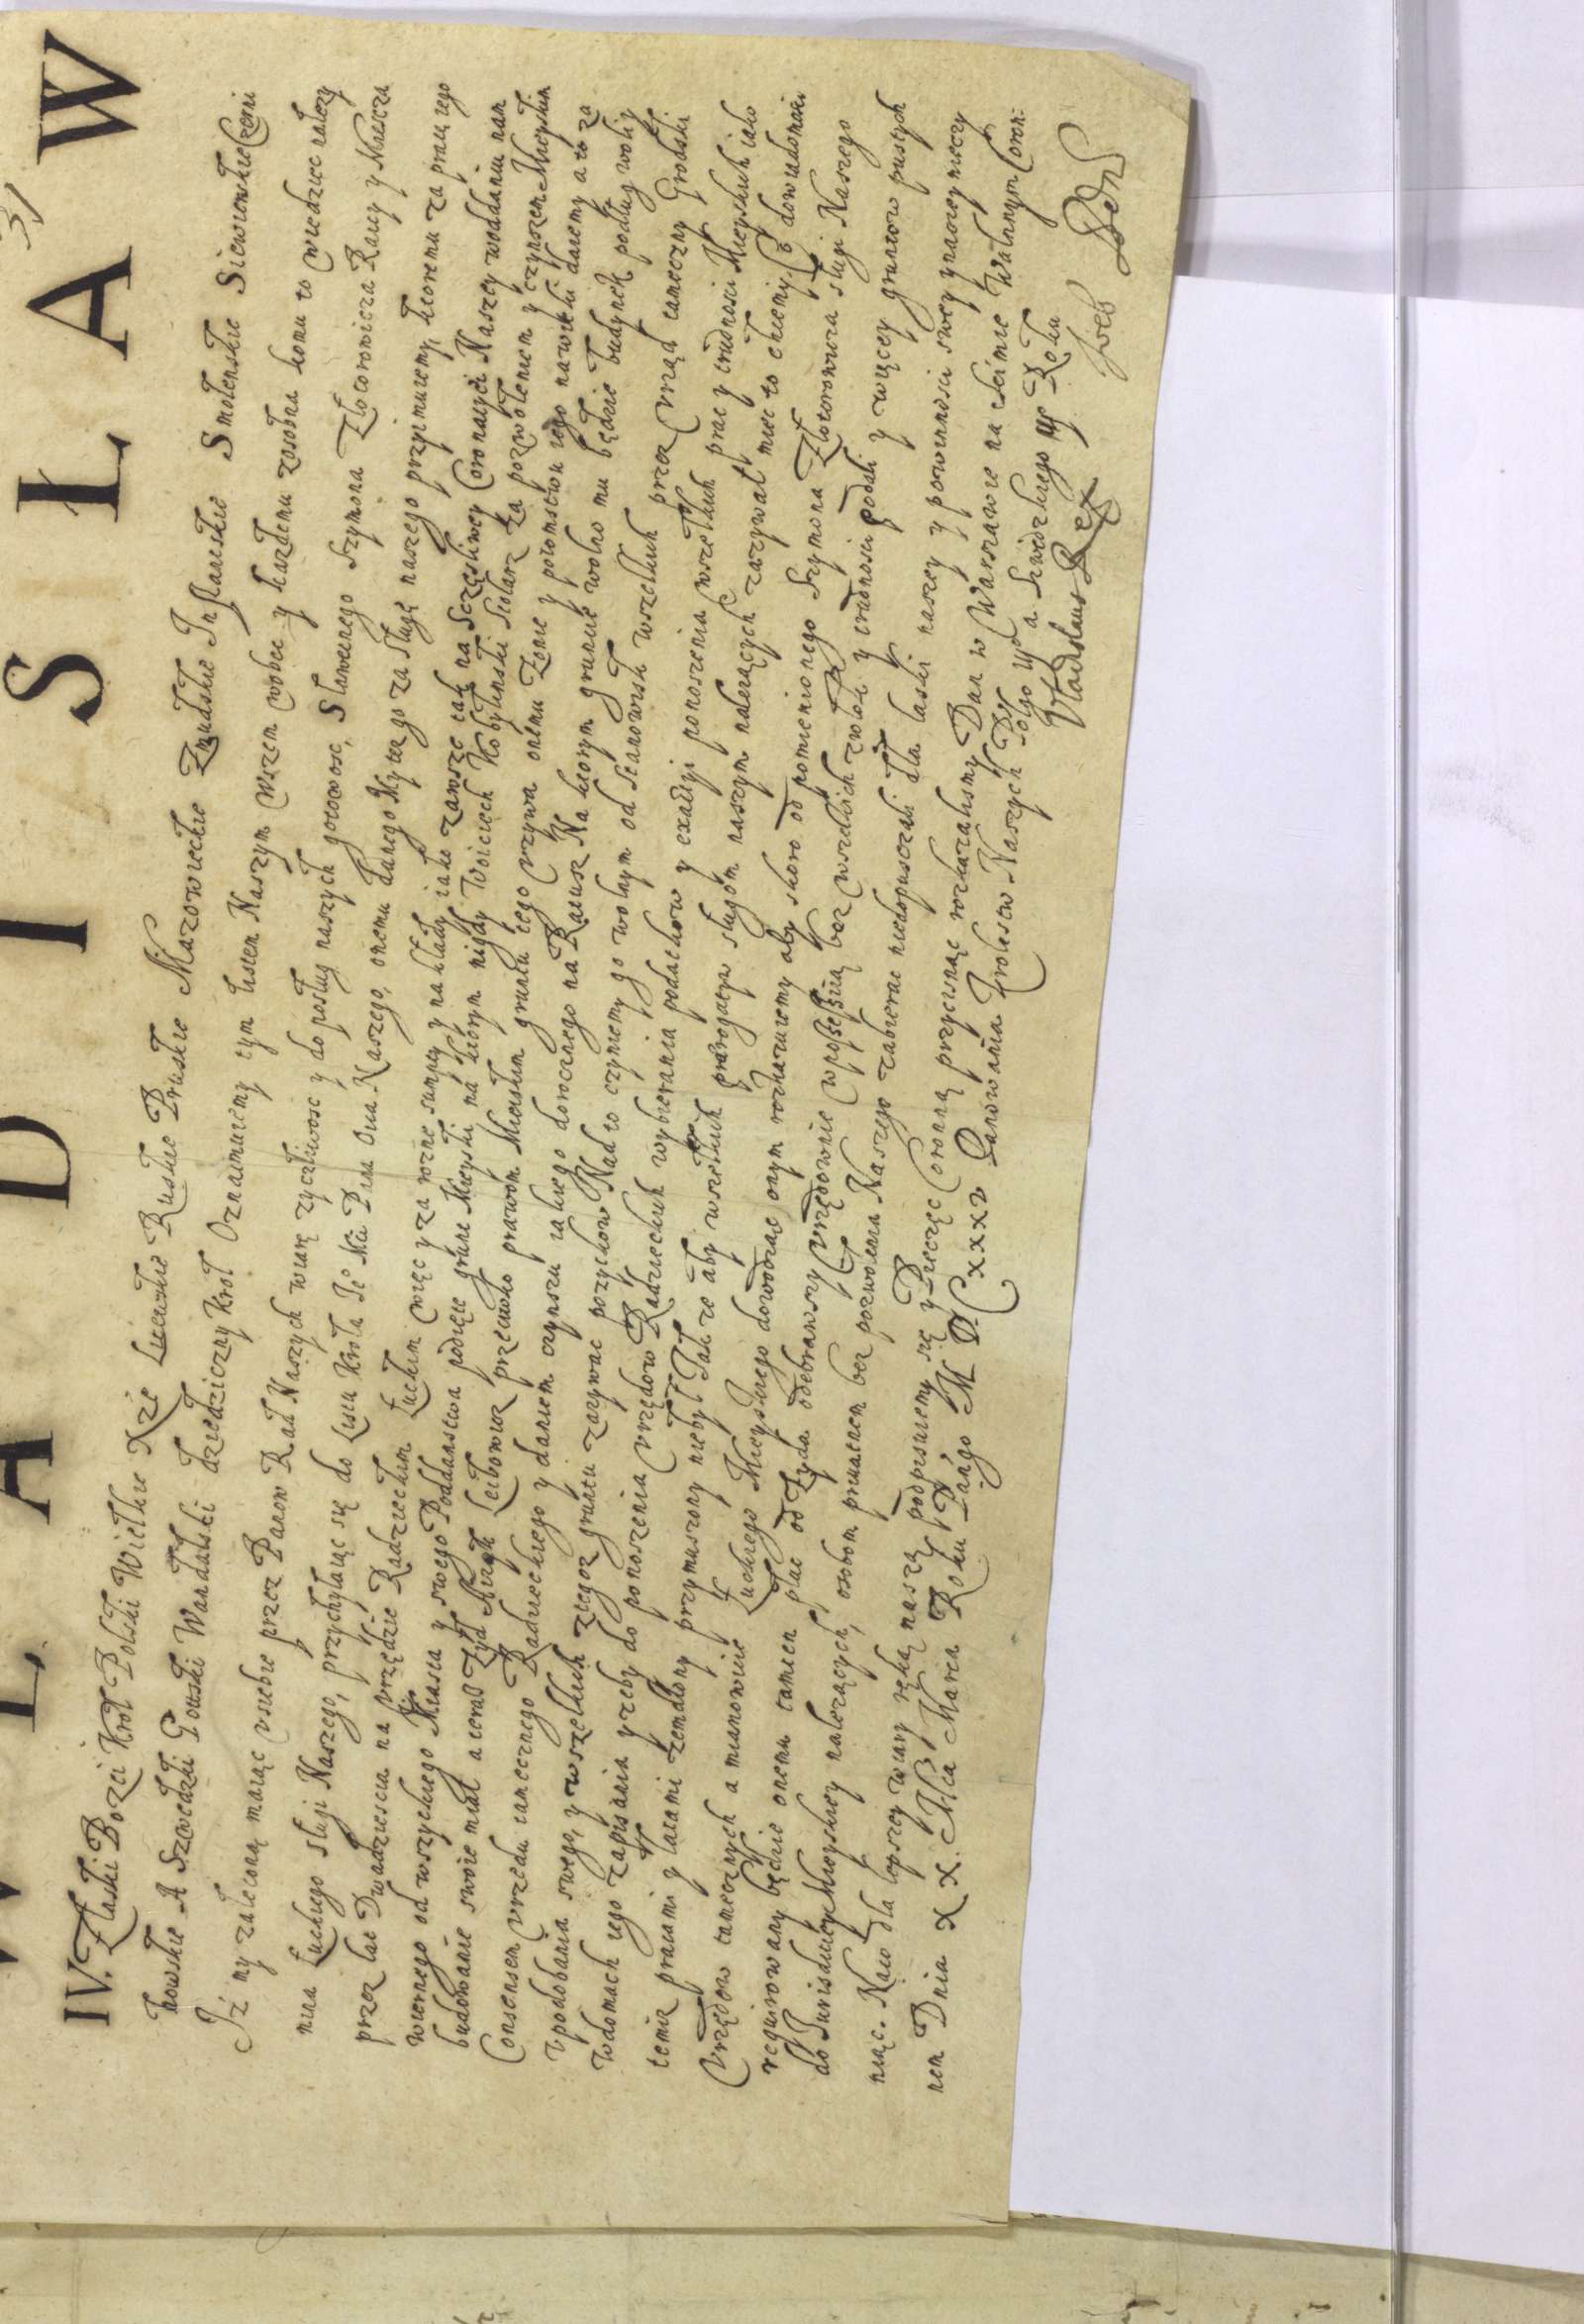 3/
WLADISLAW
IV. Z Łaski Bozei Krol Polski Wielkie Xże Litewskie Ruskie Pruskie Mazowieckie Zmudskie Inflanskie Smolenskie Siewierskie Czerni
howskie A Szwedzki Gottski Wandalski dziedziczny Krol Oznaimuiemy tym listem Naszym wszem wobec y kazdemu zosobna komu to wiedziec nalezy
Iż my zaleconą maiąc usiebie przez Panow Rad Naszych wiarę zyczliwosc y do posług naszych gotowosc, Sławetnego Szymona Złotorowicza Raicy y Miescza
nina Łuckiego sługi Naszego, przychylaiąc się do Listu Krola Je° Mci Pana Oica Naszego, onemu danego Myteż go za sługę naszego przyimuiemy, ktoremu za pracę iego
przez lat Dwadziescia na urzędzie Radzieckim Łuckim więc y za rozne sumpty y nakłady iako zawsze tak na Sczęsliwey Coronacyei Naszey woddaniu nam
wiernego od wszytkiego Miasta y swego Poddanstwa podięte grunt Mieyski na ktorym nigdy Woiciech Kobylinski Stolarz za pozwoleniem y czynszem Mieyskim
budowanie swoie miał a teraz Żyd Leibowicz przeciwko prawom Mieiskim gruntu tego uzywa onemu Zonie y potomstwu iego nawieki daiemy a to za
Consensem urzedu tamecznego Radzieckiego y daniem czynszu iakiego dorocznego na Ratusz Na ktorym gruncie wolno mu będzie budynek podług woliy
upodobania swego, y wszelkich ztegoz gruntu zazywac pozytkow Nad to czyniemy go wolnym od Stanowisk wszelkich przez urząd tameczny Grodski
wdomach iego zapisania y zeby do ponoszenia urzędow Radzieckich wybierania podatkow y exactyi ponoszenia wszelkich prac y trudnosci Mieyskich iako
temiz pracami y latami zemdlony przymuszony niebył Tak ze aby wszelkich praerogatyw sługom naszym nalezących zazywał miec to chcemy Co dowiadomosci
Urzędow tamecznych a mianowicie Łuckiego Mieyskiego dowodząc onym rozkazuiemy aby skoro od pomienionego Szymona Złotorowicza sługi Naszego
requirowany będzie onemu tamten plac od Zyda odebrawszy urzędownie wpossessią bez wszelkich zwłok y trudnosci podali y więcey gruntow pustych
do Jurisdictiey Mieyskiey nalezących, osobom privatnem bez pozwolenia Naszego zabierac niedopusczali dla łaski naszey y powinnosci swey ynaczey nieczy
niąc. Na co dla lepszey wiary ręką naszą podpisuiemy się y Pieczęc Coronną przycisnąc rozkazalismy Dan w Warszawie na Seimie Walnym Coron:
nem Dnia XX. Mca Marca Roku Pańgo M DC XXXV Panowania Krolestw Naszych Polgo III° a Szwedzkiego IIII Roku
Vladislaus Rex